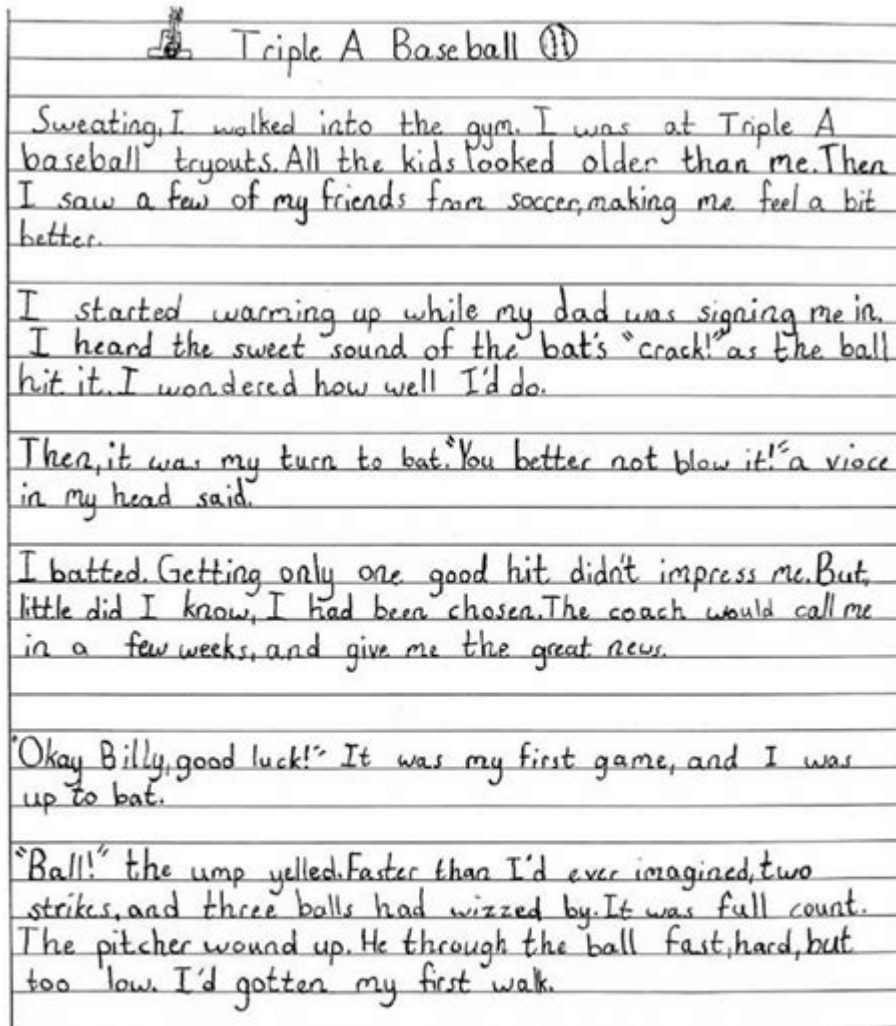 Triple A Baseball
Sweating, I walked into the gym. I was at Triple A
baseball tryouts. All the kids looked older than me. Then
I saw a few of my friends from soccer, making me feel a bit
better.
I started warming up while my dad was signing me in.
I heard the sweet sound of the bat's "crack!" as the ball
hit it. I wondered how well I'd do.
Then, it was my turn to bat. "You better not blow it!" a vioce
in my head said.
I batted. Getting only one good hit didn't impress me. But,
little did I know, I had been chosen. The coach would call me
in a few weeks, and give me the great news.
"Okay Billy, good luck!" It was my first game, and I was
up to bat.
"Ball!" the ump yelled. Faster than I'd ever imagined, two
strikes, and three balls had wizzed by. It was full count.
The pitcher wound up. He through the ball fast, hard, but
too low. I'd gotten my first walk.